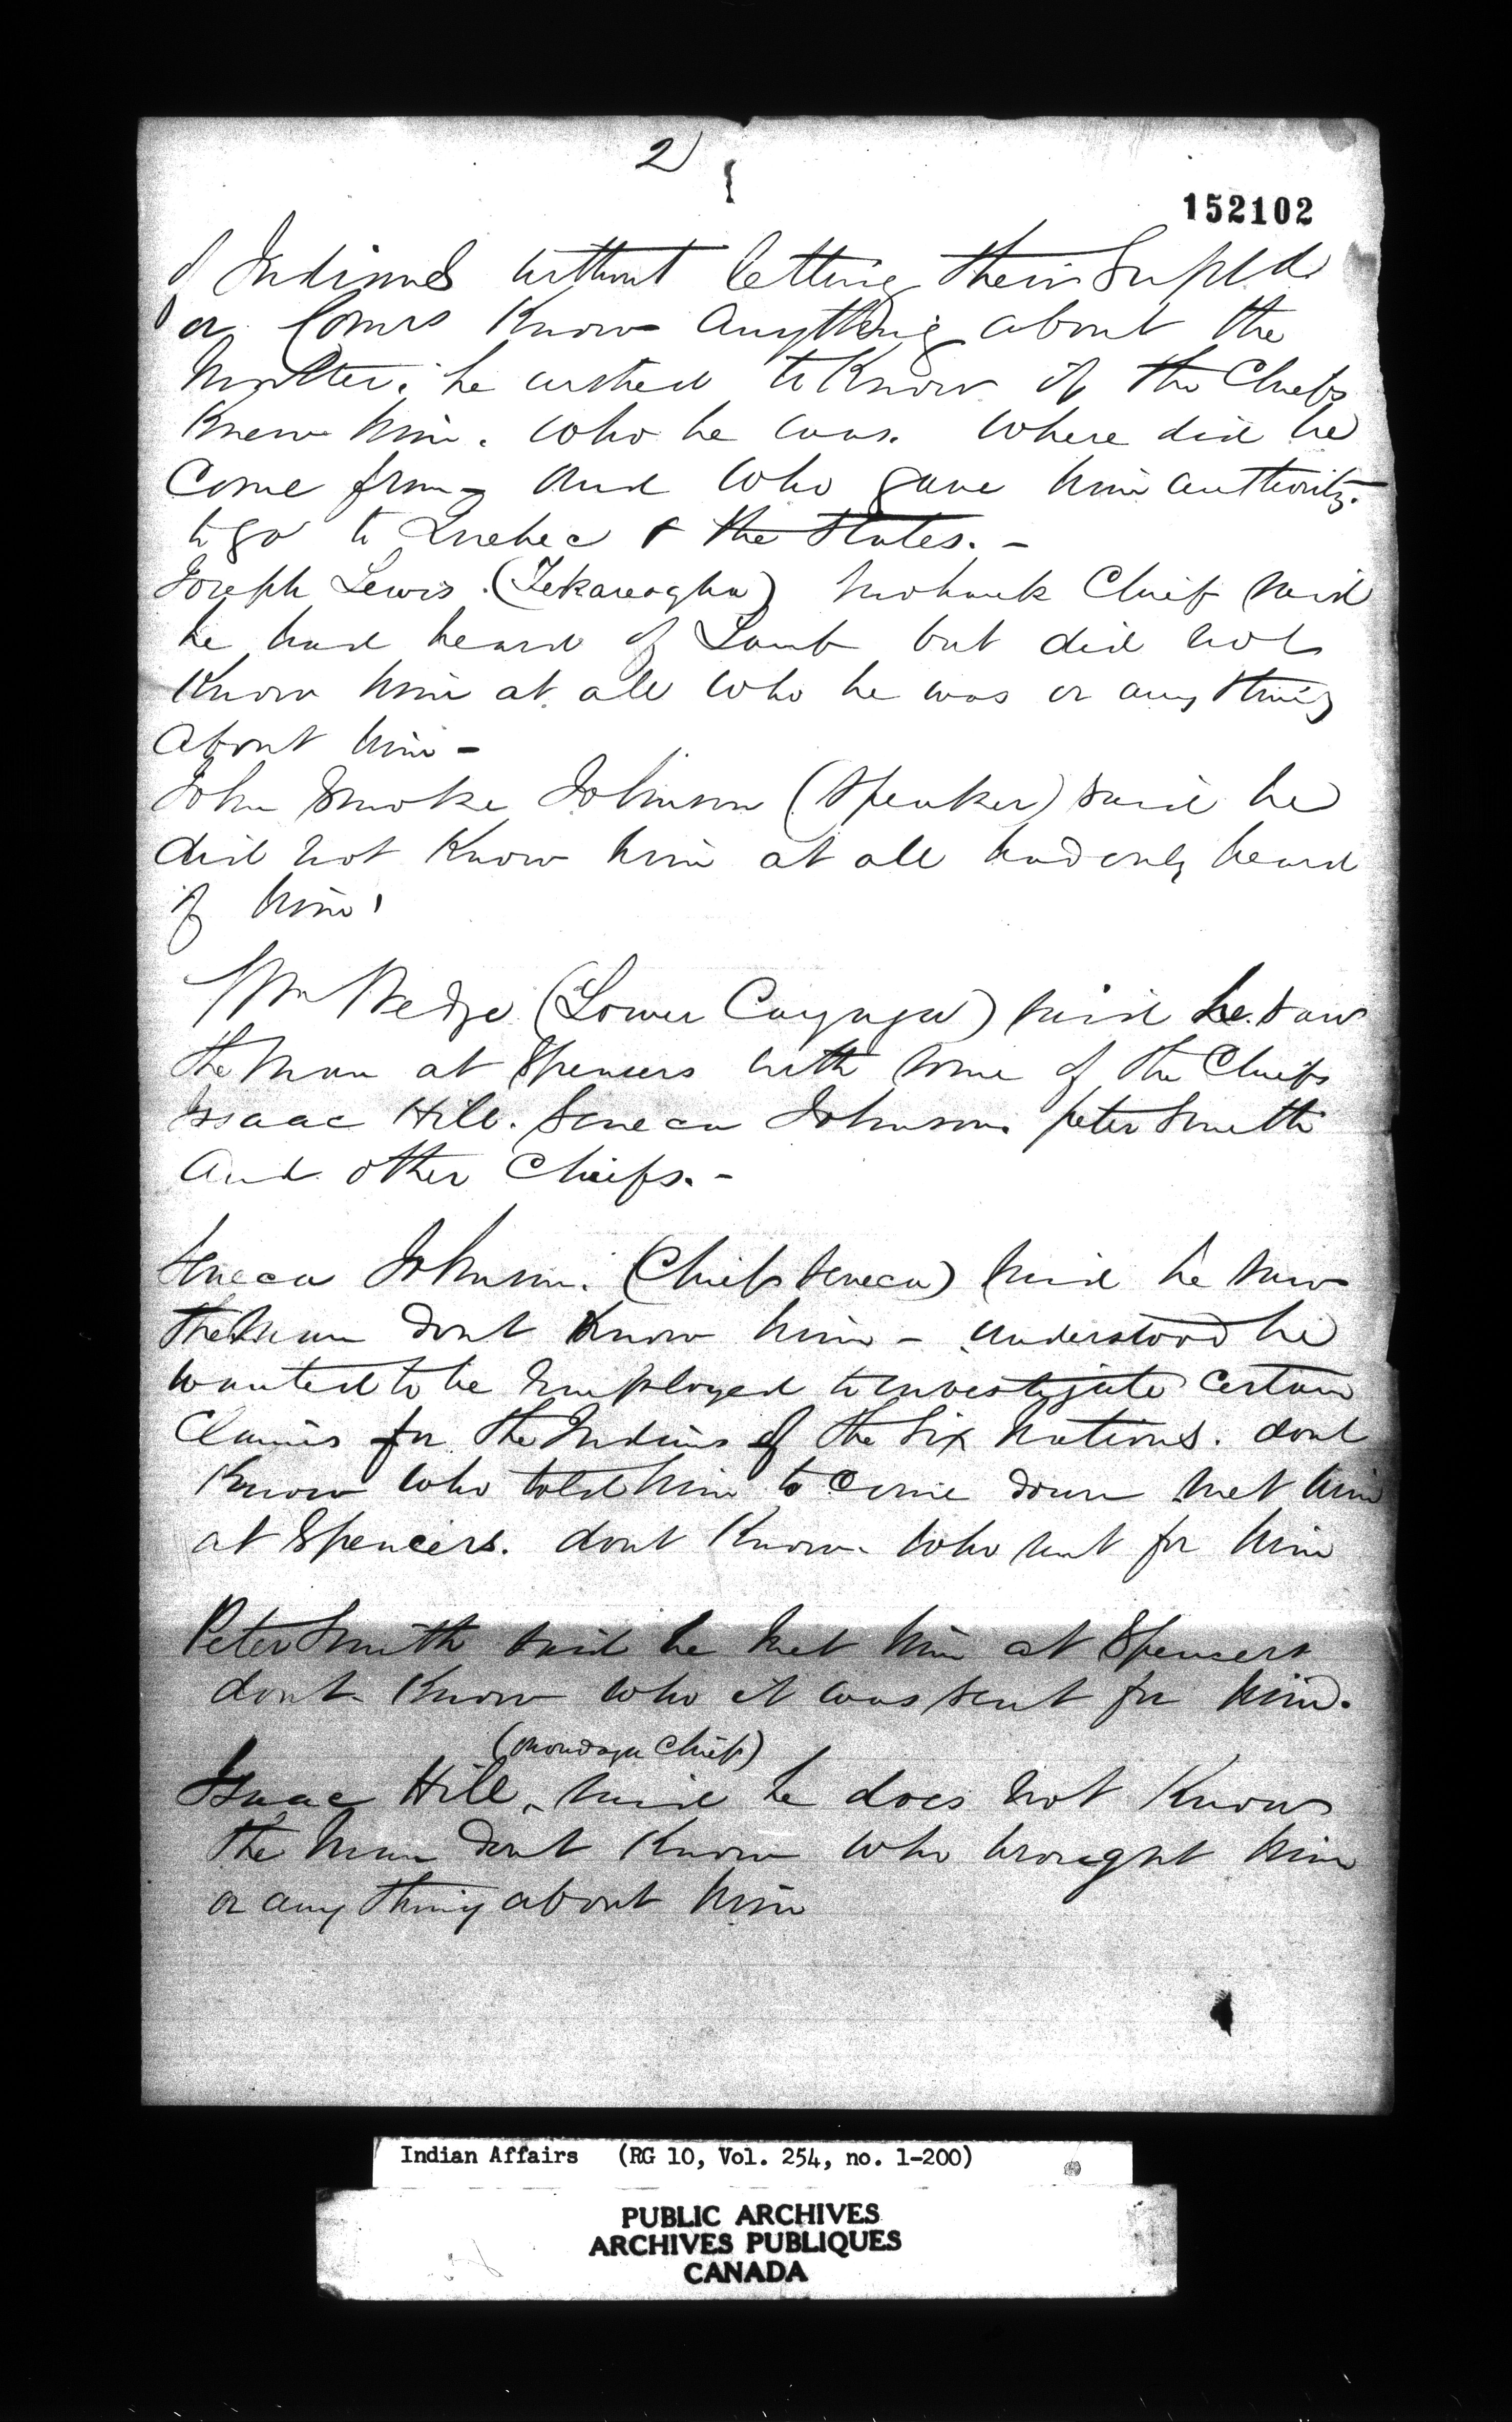 2)
152102
of Indians without letting their Suptd
or Comrs Know anything about the
Matter. he wished to Know if the Chiefs
Knew him. Who he was. Where did he
Come from, and who gave him authority
to go to Quebec & the States. -
Joseph Lewis. (Tekareogha) Mohawk Chief said
he had heard of Lamb but did not
Know him at all who he was or any thing
about him -
John Smoke Johnson (Speaker) said he
did not Know him at all had only heard
of him.
Wm Wedge (Lower Cayuga) said he saw
the man at Spencers with some of the Chiefs
Isaac Hill. Seneca Johnson. Peter Smith
and other Chiefs. -
Seneca Johnson. (Chief Seneca) said he saw
the Man dont Know him - understood he
wanted to be Employed to investigate certain
Claims for the Indians of the Six Nations. dont
Know who told him to come down met him
at Spencers. dont Know who sent for him
Peter Smith said he met him at Spencers
dont Know who it was sent for him.
(Onondaga Chief)
Isaac Hill, said he does not Know
the Man dont Know who brought him
or any thing about him
Indian Affairs (RG 10, Vol. 254, no. 1-200)
PUBLIC ARCHIVES
ARCHIVES PUBLIQUES
CANADA